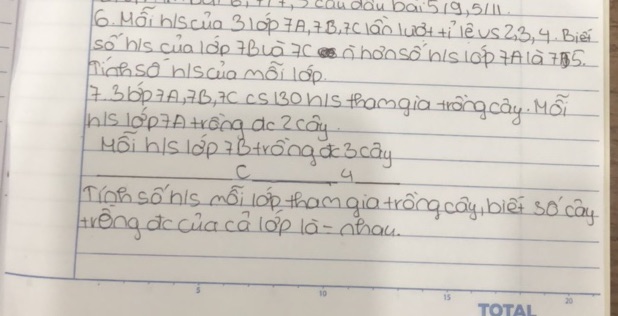 3 câu đầu bài 5/9, 5/11.
6. Mỗi h/s của 3 lớp 7A, 7B, 7C lần lượt tỉ lệ vs 2, 3, 4. Biết
số h/s của lớp 7B và 7C nhơn số h/s lớp 7A là 75.
Tính số h/s của mỗi lớp.
7. 3 lớp 7A, 7B, 7C cs 130 h/s tham gia trồng cây. Mỗi
h/s lớp 7A trồng đc 2 cây.
Mỗi h/s lớp 7B trồng đc 3 cây
C 4
Tính số h/s mỗi lớp tham gia trồng cây, biết số cây
trồng đc của cả lớp là = nhau.
5 10 15 20
TOTAL